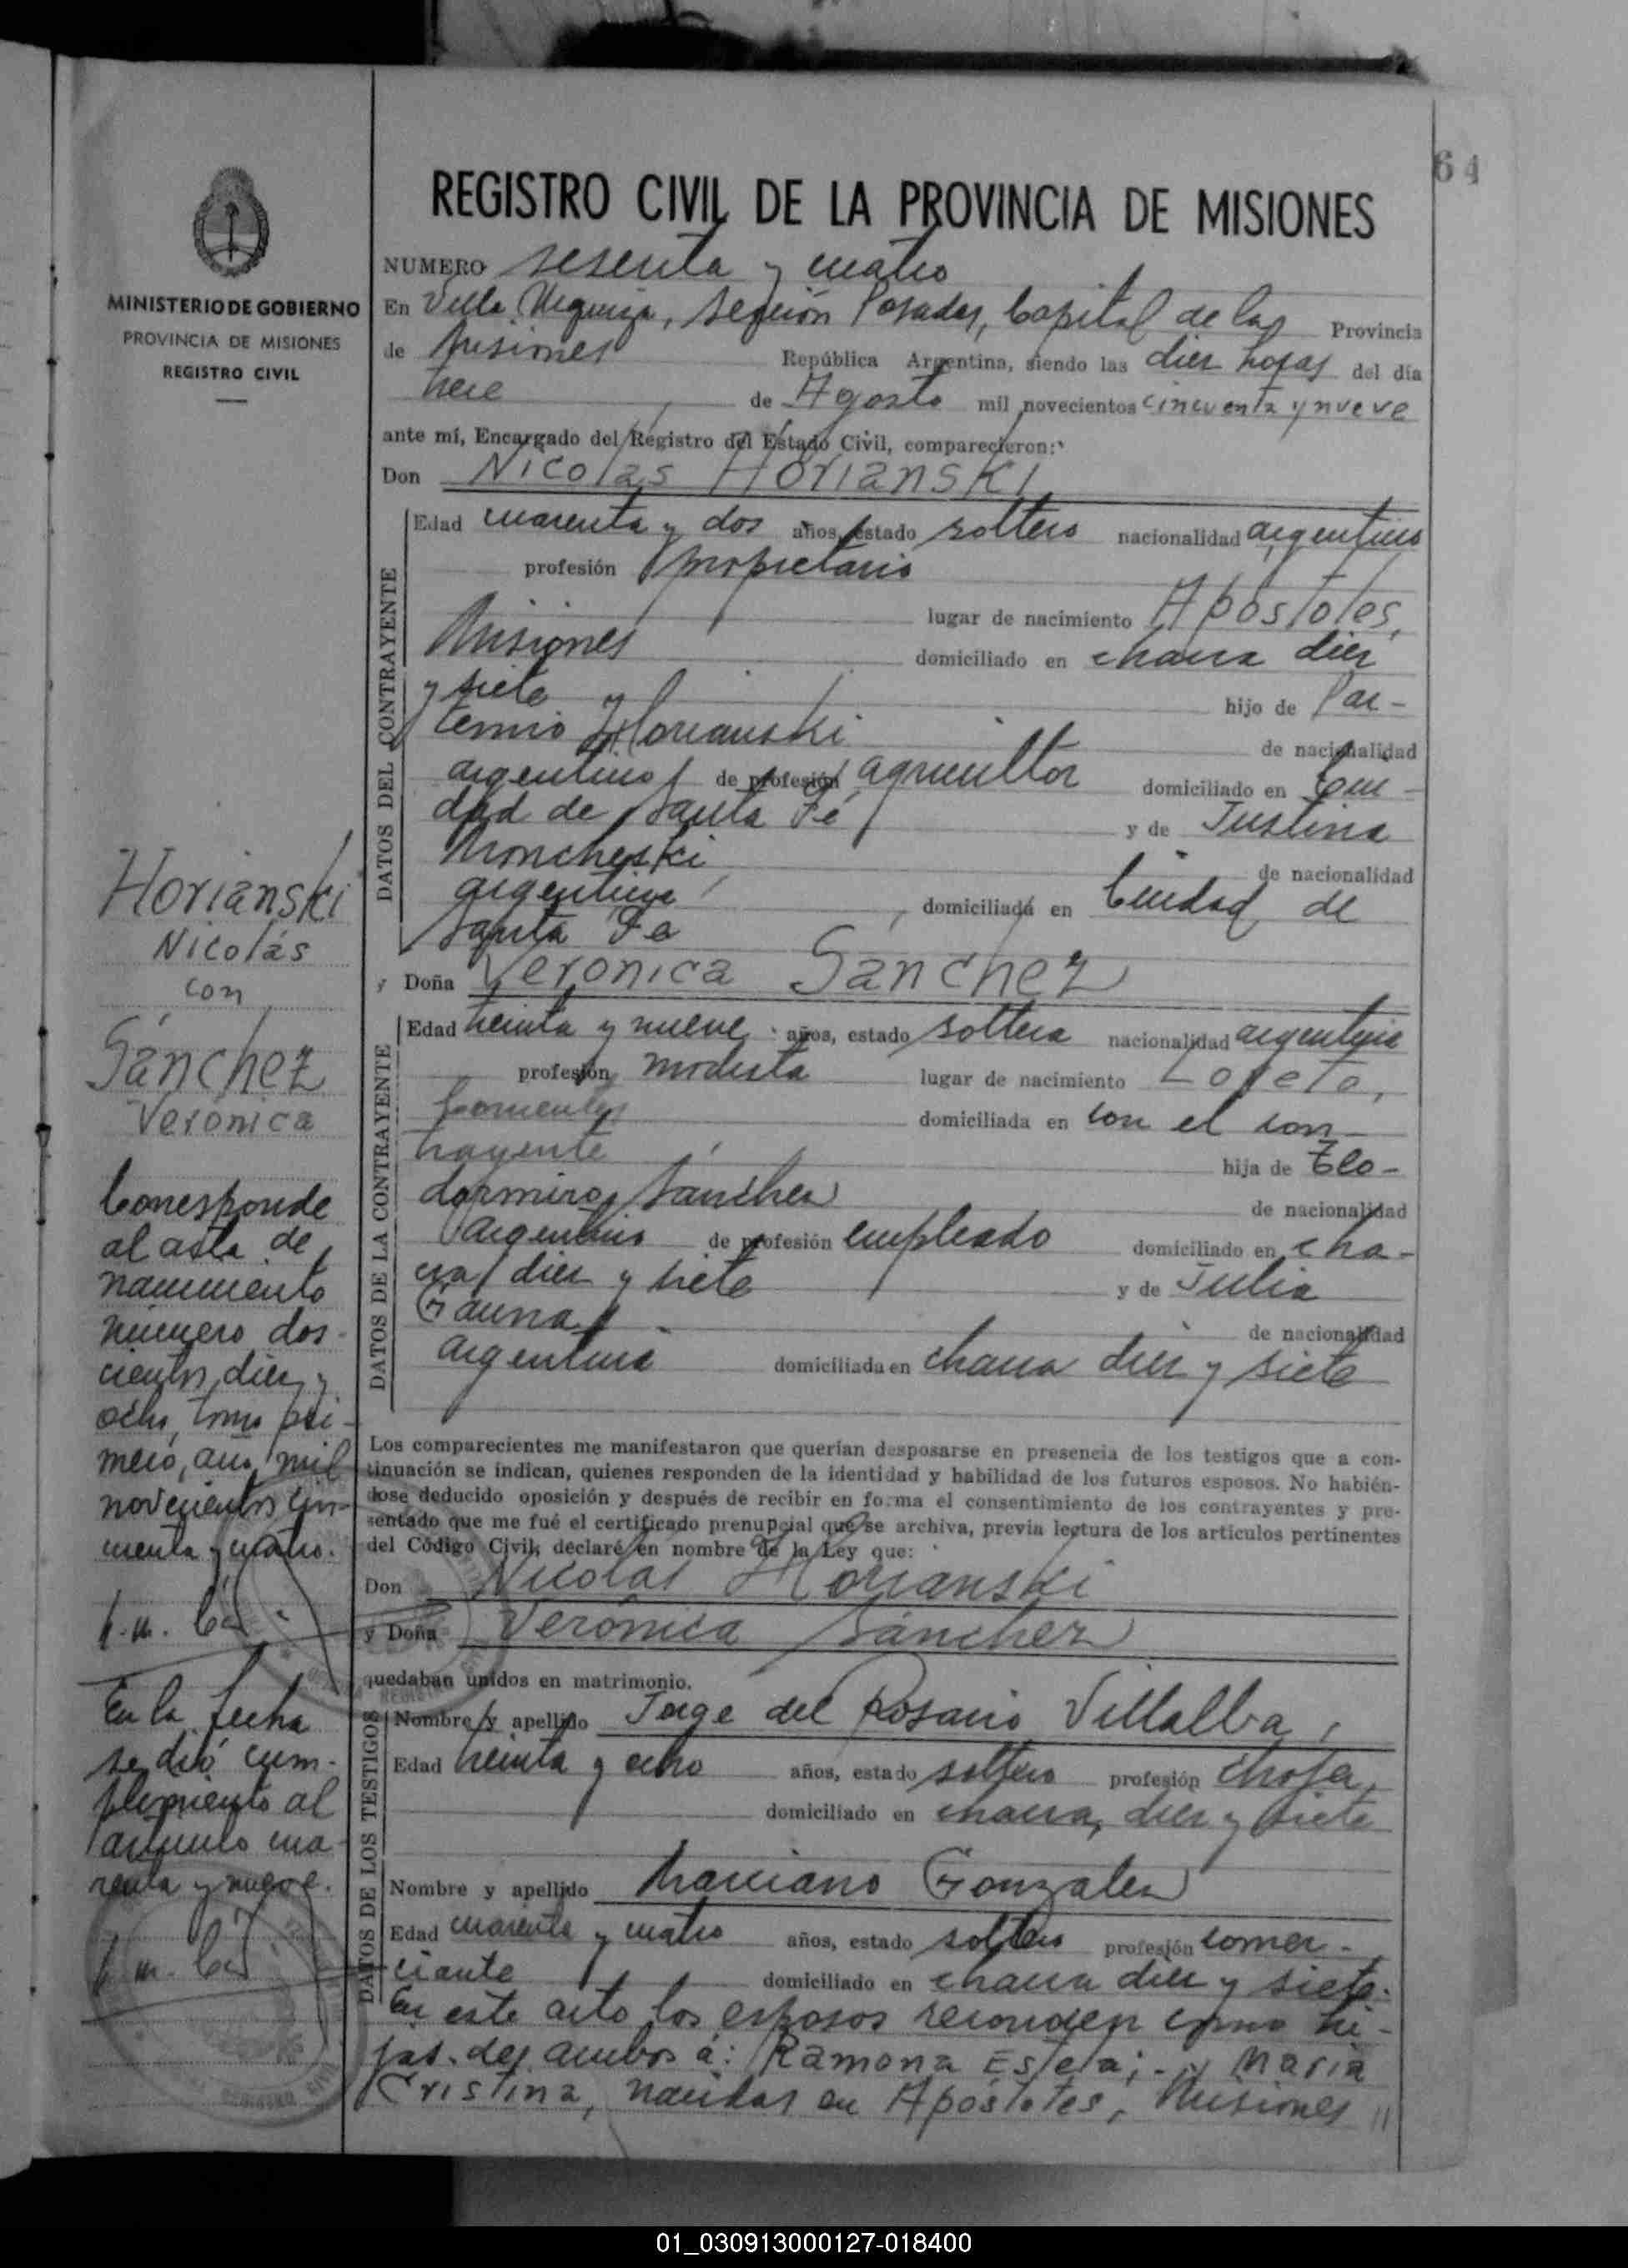 64
REGISTRO CIVIL DE LA PROVINCIA DE MISIONES
MINISTERIO DE GOBIERNO
PROVINCIA DE MISIONES
REGISTRO CIVIL
NUMERO sesenta y cuatro
En Villa Urquiza, sección Posadas, Capital de la Provincia
de Misiones República Argentina, siendo las diez horas del día
trece de Agosto mil novecientos cincuenta y nueve
ante mí, Encargado del Registro del Estado Civil, comparecieron:
Don Nicolás Horianski
DATOS DEL CONTRAYENTE
Edad cuarenta y dos años, estado soltero nacionalidad argentino
profesión propietario
lugar de nacimiento Apóstoles,
Misiones domiciliado en chacra diez
y siete hijo de Par-
temio Horianski de nacionalidad
argentino de profesión agricultor domiciliado en Ciu-
dad de Santa Fé y de Justina
Moncheski de nacionalidad
argentina domiciliada en Ciudad de
Santa Fe
y Doña Verónica Sánchez
DATOS DE LA CONTRAYENTE
Edad treinta y nueve años, estado soltera nacionalidad argentina
profesión modista lugar de nacimiento Loreto,
Corrientes domiciliada en con el con-
trayente hija de Clo-
dormiro Sánchez de nacionalidad
argentino de profesión empleado domiciliado en cha-
cra diez y siete y de Julia
Gauna de nacionalidad
argentina domiciliada en chacra diez y siete
Los comparecientes me manifestaron que querían desposarse en presencia de los testigos que a con-
tinuación se indican, quienes responden de la identidad y habilidad de los futuros esposos. No habién-
dose deducido oposición y después de recibir en forma el consentimiento de los contrayentes y pre-
sentado que me fué el certificado prenupcial que se archiva, previa lectura de los artículos pertinentes
del Código Civil, declaré en nombre de la Ley que:
Don Nicolás Horianski
y Doña Verónica Sánchez
quedaban unidos en matrimonio.
DATOS DE LOS TESTIGOS
Nombre y apellido Jorge del Rosario Villalba,
Edad treinta y ocho años, estado soltero profesión chofer,
domiciliado en chacra, diez y siete
Nombre y apellido Marciano Gonzalez
Edad cuarenta y cuatro años, estado soltero profesión comer-
ciante domiciliado en chacra diez y siete.
En este acto los esposos reconocen como hi-
jas de ambos a: Ramona Estela; y María
Cristina, nacidas en Apóstoles, Misiones
Horianski
Nicolás
con
Sánchez
Verónica
Corresponde
al acta de
nacimiento
número dos-
cientos diez y
ocho, tomo pri-
mero, año mil
novecientos cin-
cuenta y cuatro.
En la fecha
se dió cum-
plimiento al
artículo cua-
renta y nueve.
01_030913000127-018400